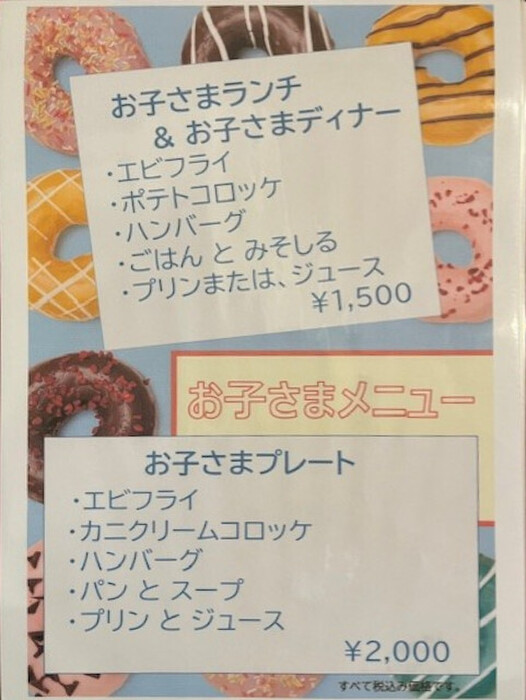 お子さまランチ
& お子さまディナー
・エビフライ
・ポテトコロッケ
・ハンバーグ
・ごはん と みそしる
・プリンまたは、ジュース
¥1,500
お子さまメニュー
お子さまプレート
・エビフライ
・カニクリームコロッケ
・ハンバーグ
・パン と スープ
・プリン と ジュース
¥2,000
すべて税込み価格です。